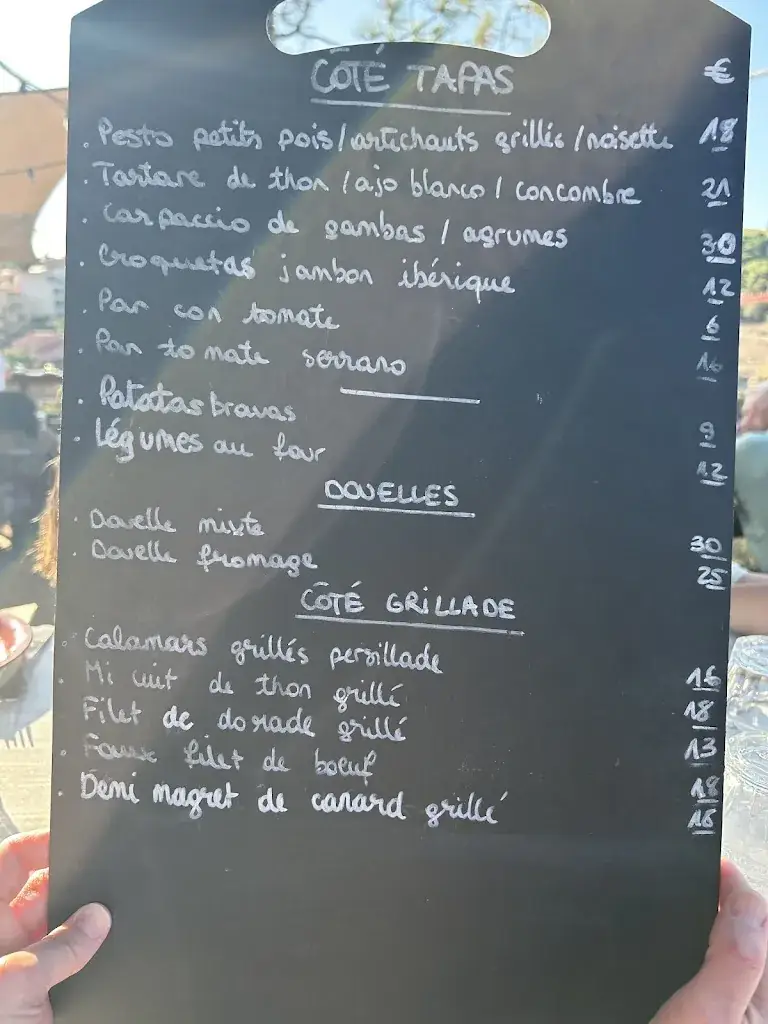 CÔTÉ TAPAS €
. Pesto petits pois/artichauts grillés/noisette 18
. Tartare de thon / ajo blanco / concombre 21
. Carpaccio de gambas / agrumes 30
. Croquetas jambon ibérique 12
. Pan con tomate 6
. Pan tomate serrano 16
. Patatas bravas 9
. légumes au four 12
DOUELLES
. Douelle mixte 30
. Douelle fromage 25
CÔTÉ GRILLADE
. Calamars grillés persillade 16
. Mi cuit de thon grillé 18
. Filet de dorade grillé 13
. Faux filet de boeuf 18
. Demi magret de canard grillé 16